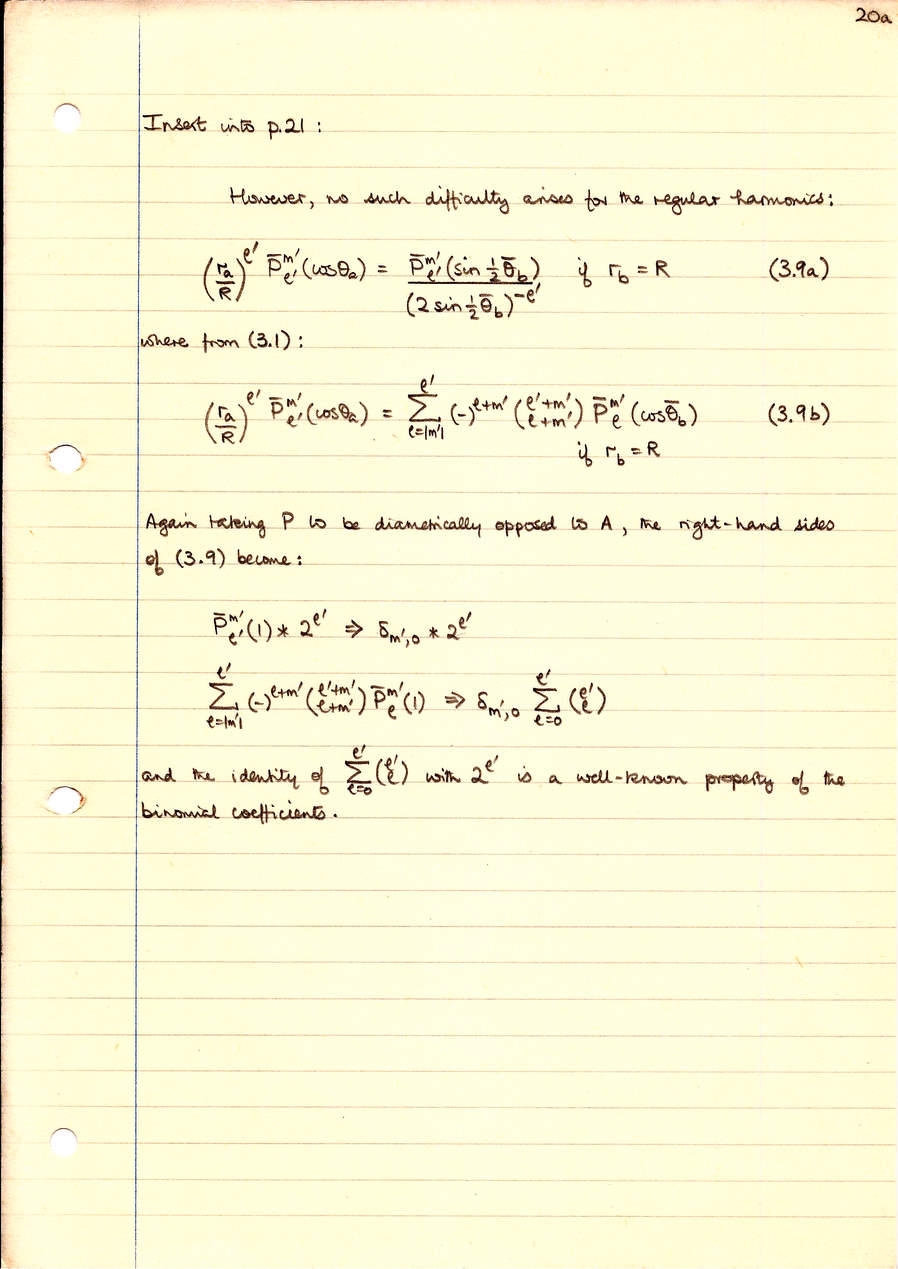 20a
Insert into p.21 :
However, no such difficulty arises for the regular harmonics:
(r_a/R)^ℓ' P̄_ℓ'^m' (cosθ_a) = P̄_ℓ'^m' (sin ½ θ̄_b) / (2 sin ½ θ̄_b)^-ℓ' if r_b = R (3.9a)
where from (3.1) :
(r_a/R)^ℓ' P̄_ℓ'^m' (cosθ_a) = Σ_{ℓ=|m'|}^{ℓ'} (-)^{ℓ+m'} (ℓ'+m' / ℓ+m') P̄_ℓ^m' (cosθ̄_b) (3.9b)
if r_b = R
Again taking P to be diametrically opposed to A , the right-hand sides
of (3.9) become :
P̄_ℓ'^m' (1) * 2^ℓ' ⇒ δ_m',0 * 2^ℓ'
Σ_{ℓ=|m'|}^{ℓ'} (-)^{ℓ+m'} (ℓ'+m' / ℓ+m') P̄_ℓ^m' (1) ⇒ δ_m',0 Σ_{ℓ=0}^{ℓ'} (ℓ' / ℓ)
and the identity of Σ_{ℓ=0}^{ℓ'} (ℓ' / ℓ) with 2^ℓ' is a well-known property of the
binomial coefficients .